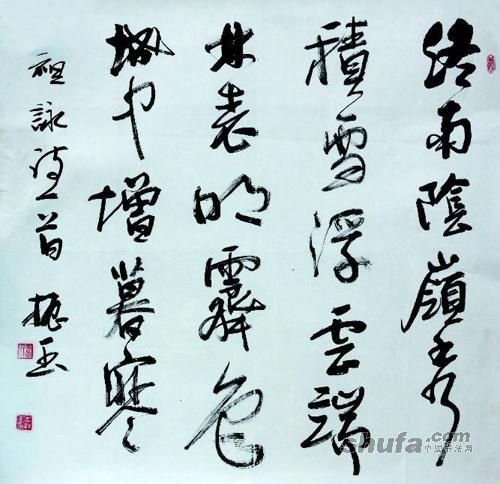 終南陰嶺秀
積雪浮雲端
林表明霽色
城中增暮寒
祖詠詩一首 振玉
shufa.com
中国书法网